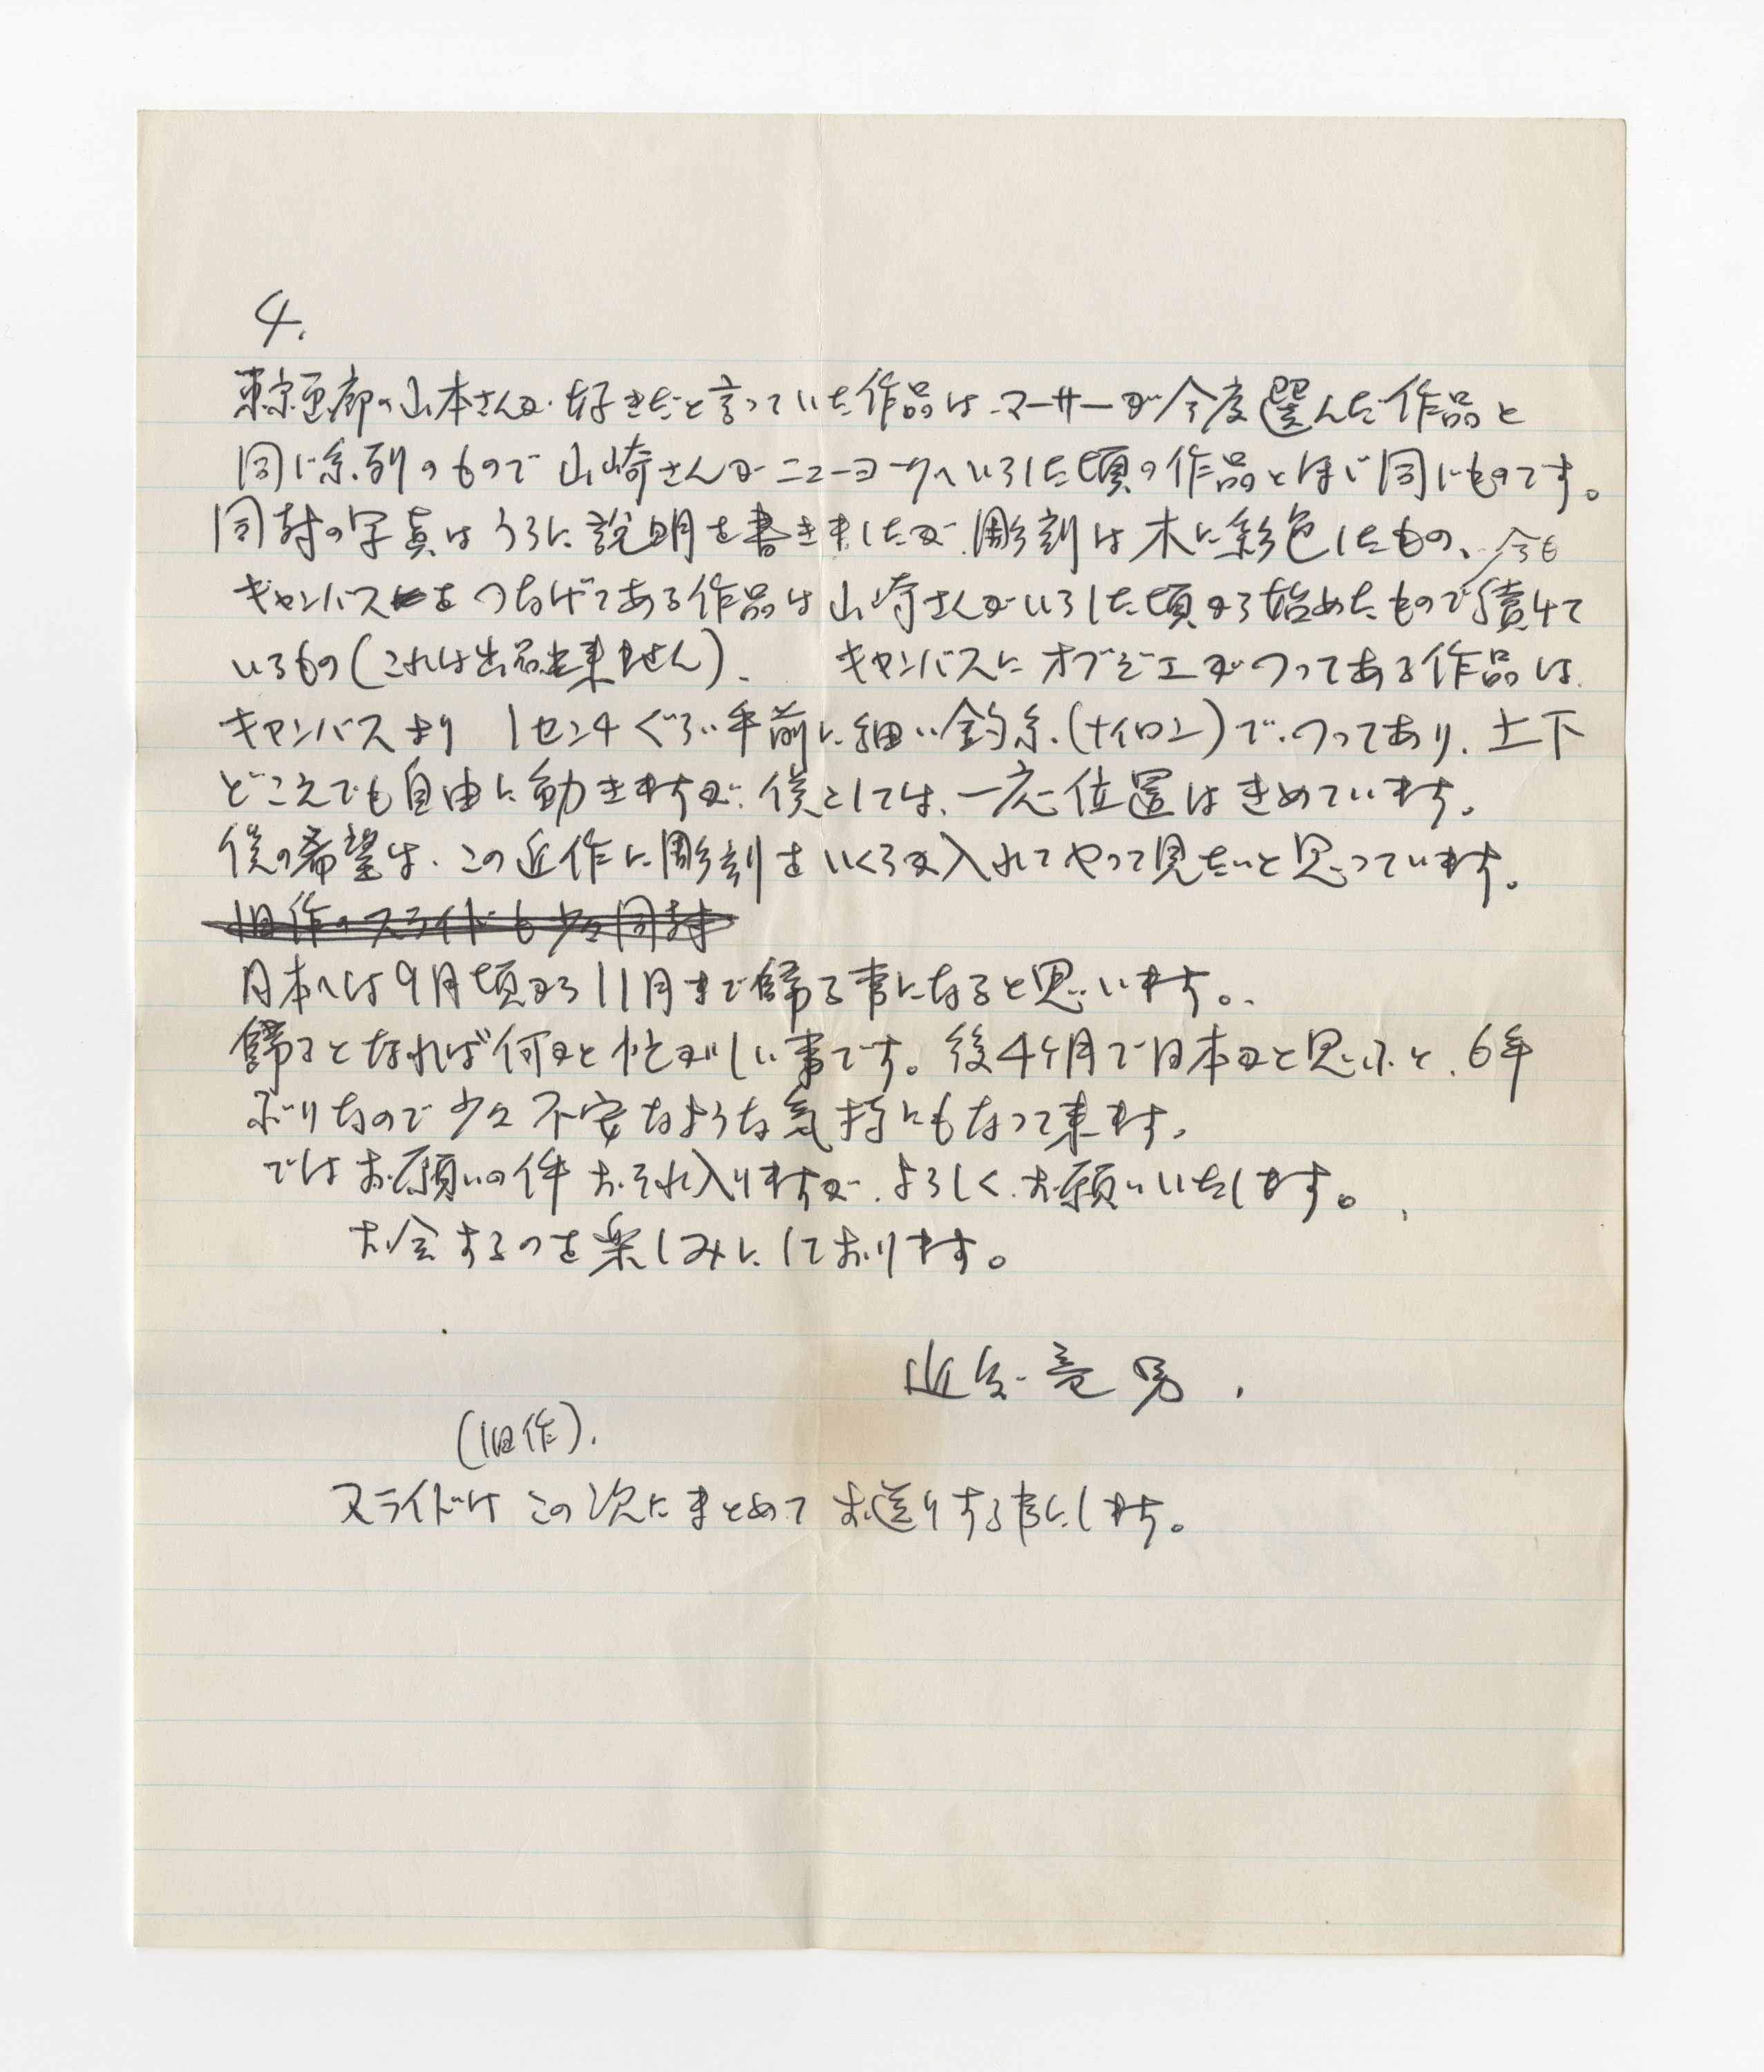 4.
東京画廊の山本さんが好きだと言っていた作品は、マーサーが今度選んだ作品と
同じ系列のもので山崎さんがニューヨークへいらした頃の作品とほぼ同じものです。
同封の写真はうらに説明を書きましたが、彫刻は木に彩色したもの、今も
キャンバスをつなげてある作品は山崎さんがいらした頃から始めたもので続けて
いるもの(これは出品出来ません)、 キャンバスにオブジェがつってある作品は
キャンバスより 1センチぐらい手前に細い釣糸(ナイロン)で、つってあり、上下
どこえでも自由に動きますが、僕としては、一応位置はきめています。
僕の希望は、この近作に彫刻をいくらか入れてやって見たいと思っています。
旧作のスライドも少々同封
日本へは9月頃から11月まで帰る事になると思います。
帰るとなれば何かと忙がしい事です。後4ヶ月で日本かと思ふと、6年
ぶりなので少々不安なような気持にもなって来ます。
ではお願いの件おそれ入りますが、よろしくお願いいたします。
お会するのを楽しみにしております。
近藤竜男
(旧作)
スライドは この次にまとめて お送りする事にします。